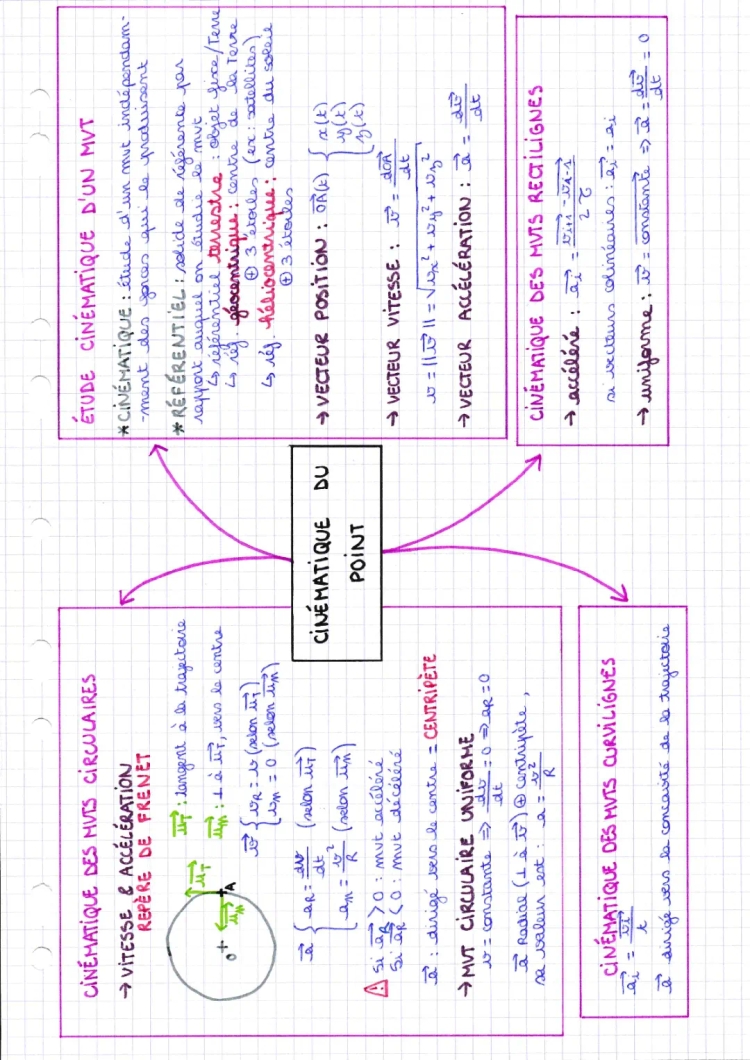 CINÉMATIQUE DU
POINT
ÉTUDE CINÉMATIQUE D'UN MVT
* CINÉMATIQUE : étude d'un mvt indépendam-
-ment des forces qui le produisent
* RÉFÉRENTIEL : solide de référence par
rapport auquel on étudie le mvt
↳ référentiel terrestre : objet fixe/Terre
↳ réf. géocentrique : centre de la Terre
⊕ 3 étoiles (ex : satellites)
↳ réf. héliocentrique : centre du soleil
⊕ 3 étoiles
→ VECTEUR POSITION : OA(t) { x(t)
y(t)
z(t)
→ VECTEUR VITESSE : v = dOA/dt
v = ||v|| = √vx² + vy² + vz²
→ VECTEUR ACCÉLÉRATION : a = dv/dt
CINÉMATIQUE DES MVTS RECTILIGNES
→ accéléré : ai = vi+1 - vi-1 / 2 τ
si vecteurs colinéaires : ai = ai
→ uniforme : v = constante ⇒ a = dv/dt = 0
CINÉMATIQUE DES MVTS CIRCULAIRES
→ VITESSE & ACCÉLÉRATION
REPÈRE DE FRENET
uT : tangent à la trajectoire
un : ⊥ à uT, vers le centre
uT
A
un
O+
v { vR = v (selon uT)
vn = 0 (selon un)
a { aR = dv/dt (selon uT)
an = v²/R (selon un)
⚠ Si aR > 0 : mvt accéléré
Si aR < 0 : mvt décéléré
a : dirigé vers le centre = CENTRIPÈTE
→ MVT CIRCULAIRE UNIFORME
v = constante ⇒ dv/dt = 0 ⇒ aR = 0
a Radial (⊥ à v) ⊕ centripète,
sa valeur est : a = v²/R
CINÉMATIQUE DES MVTS CURVILIGNES
ai = vi/t
a dirigé vers la concavité de la trajectoire